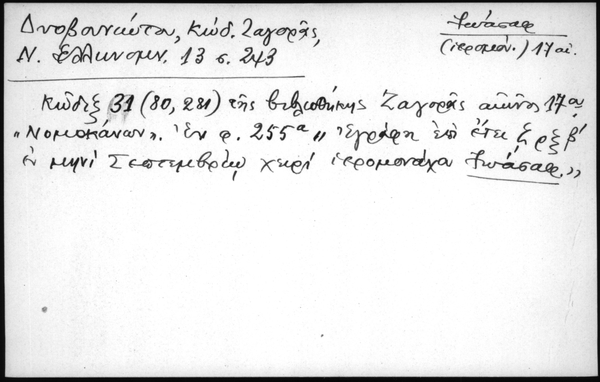 Δυοβουνιώτου, Κώδ. Ζαγορᾶς,
Ν. Ἑλληνομν. 13 σ. 243
Ἰωάσαφ
(ἱερομόν.) 17 αἰ.
Κῶδιξ 31 (80, 281) τῆς βιβλιοθήκης Ζαγορᾶς αἰῶνος 17ου
"Νομοκάνων". Ἐν φ. 255α "Ἐγράφη ἐπὶ ἔτει ζρξβ΄
ἐν μηνὶ Σεπτεμβρίῳ χειρὶ ἱερομονάχου Ἰωάσαφ."